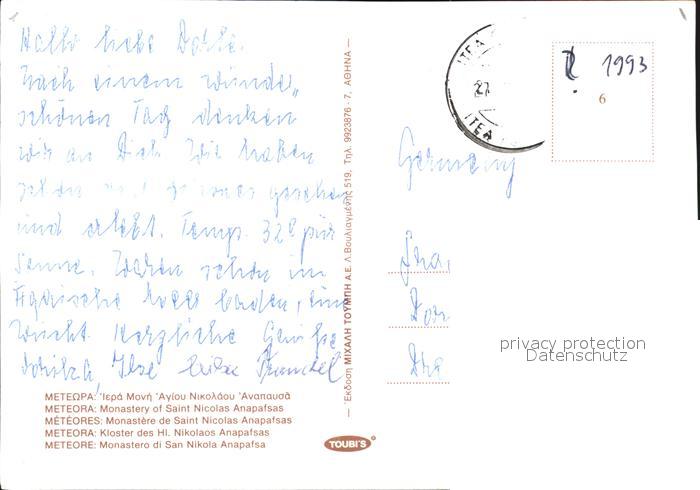 Hallo liebe Dorle.
Nach einem wunder„
schönen Tag denken
wir an Dich. Wir haben
schon
und erlebt. Temp. 32° pur
Sonne. Waren schon im
baden, eine
Wucht. Herzliche Grüße
Ilse
ΜΕΤΕΩΡΑ: Ἱερά Μονή Ἁγίου Νικολάου Ἀναπαυσᾶ
METEORA: Monastery of Saint Nicolas Anapafsas
MÉTÉORES: Monastère de Saint Nicolas Anapafsas
METEORA: Kloster des Hl. Nikolaos Anapafsas
METEORE: Monastero di San Nikola Anapafsa
Ἔκδοση ΜΙΧΑΛΗ ΤΟΥΜΠΗ Α.Ε. Λ. Βουλιαγμένης 519, Τηλ. 9923876 - 7, ΑΘΗΝΑ
TOUBI'S
ITEA
27
ITEA
1993
6
Germany
Fra
Dor
privacy protection
Datenschutz